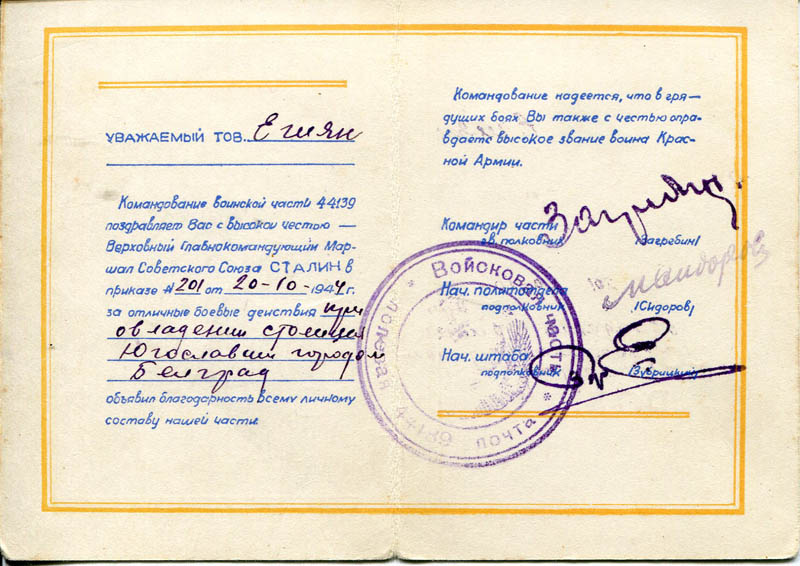 УВАЖАЕМЫЙ ТОВ. Егиян
Командование воинской части 44139
поздравляет Вас с высокой честью —
Верховный Главнокомандующий Мар-
шал Советского Союза СТАЛИН в
приказе № 201 от 20-10-1944 г.
за отличные боевые действия при
овладении столицей
Югославии городом
Белград
объявил благодарность всему личному
составу нашей части.
Командование надеется, что в гря—
дущих боях Вы также с честью оправ-
даете высокое звание воина Крас-
ной Армии.
Командир части
гв. полковник /Загребин/
Нач. политотдела
подполковник /Сидоров/
Нач. штаба
подполковник /Зубрицкий/
Войсковая часть * полевая почта 44139 *